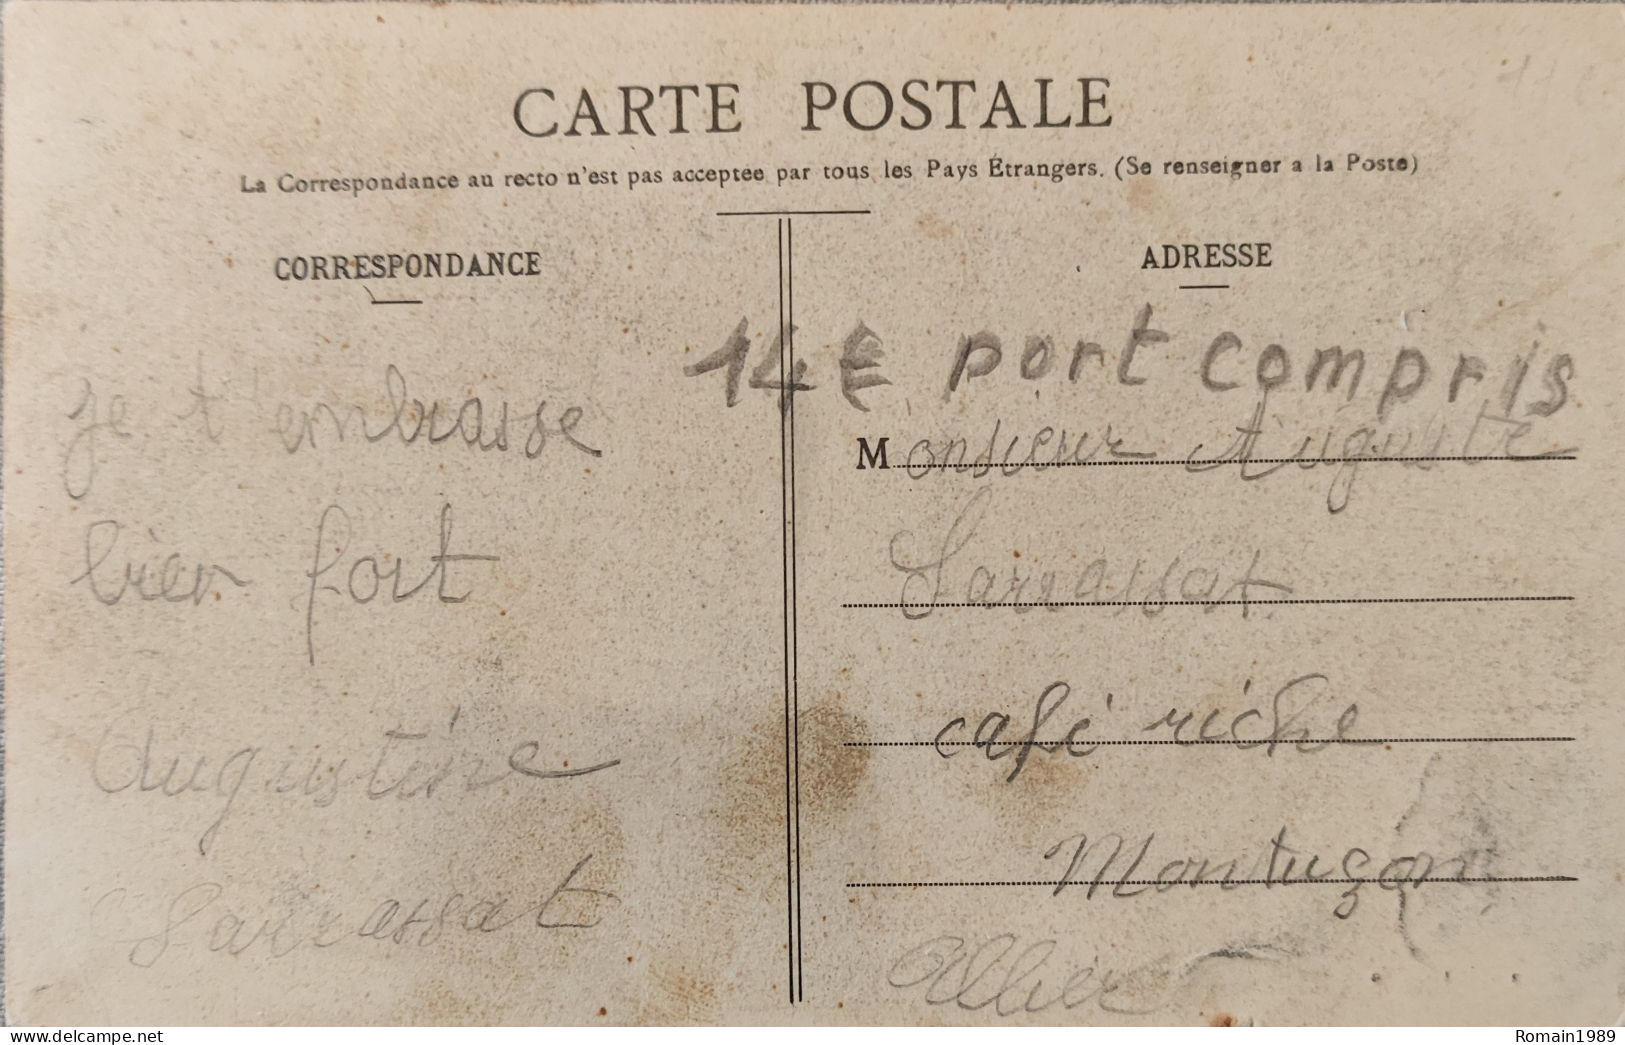 CARTE POSTALE
La Correspondance au recto n'est pas acceptée par tous les Pays Étrangers. (Se renseigner a la Poste)
CORRESPONDANCE
je t'embrasse
bien fort
Augustine
Sarrassat
ADRESSE
14€ port compris
Monsieur Auguste
Sarrassat
café riche
Montuçon
Allier
Romain1989